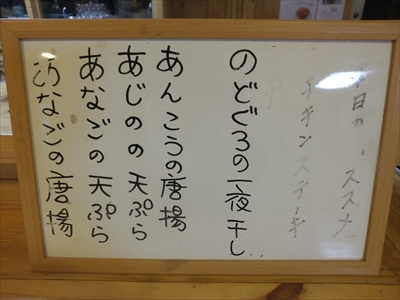 本日の、ススメ
チキンステーキ
のどぐろの一夜干し
あんこうの唐揚
あじのの天ぷら
あなごの天ぷら
こうなごの唐揚